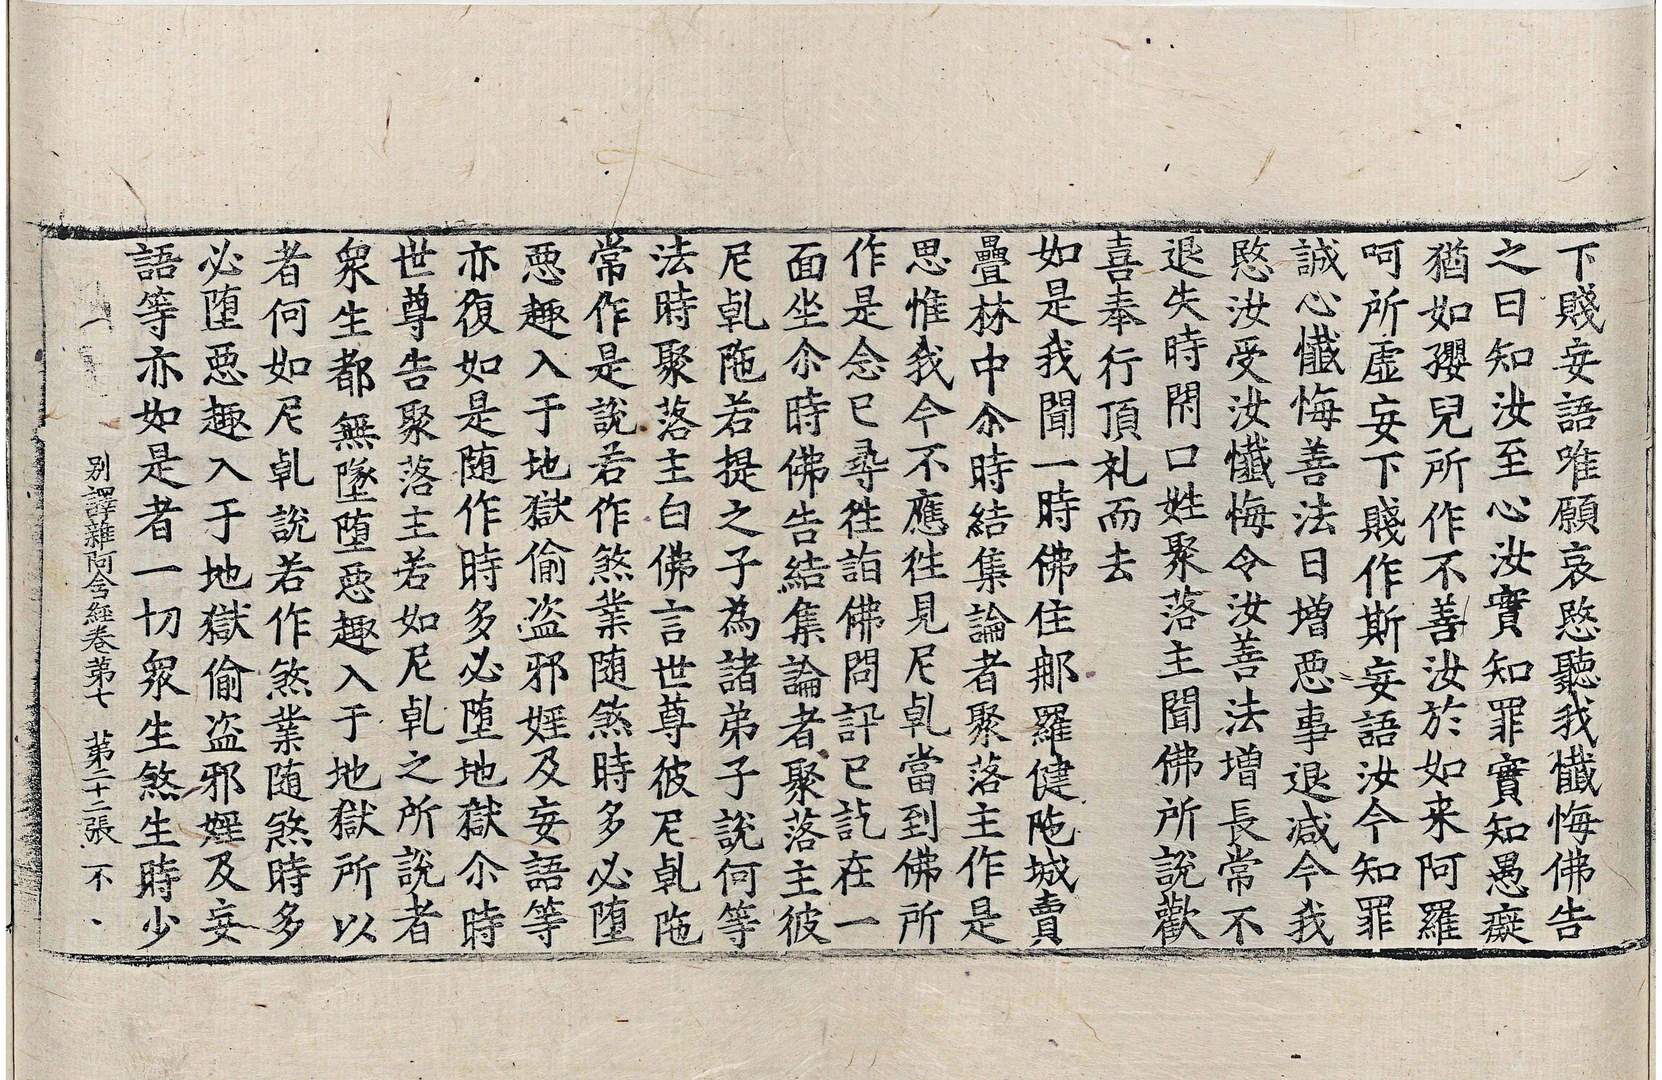 下賤妄語唯願哀愍聽我懺悔佛告
之曰知汝至心汝實知罪實知愚癡
猶如孾兒所作不善汝於如来阿羅
呵所虛妄下賤作斯妄語汝今知罪
誠心懺悔善法日增惡事退減今我
愍汝受汝懺悔令汝善法增長常不
退失時閇口姓聚落主聞佛所說歡
喜奉行頂礼而去
如是我聞一時佛住𨚗羅健陁城賣
疊林中尒時結集論者聚落主作是
思惟我今不應徃見尼乹當到佛所
作是念已尋徃詣佛問訊已訖在一
面坐尒時佛告結集論者聚落主彼
尼乹陁若提之子為諸弟子說何等
法時聚落主白佛言世尊彼尼乹陁
常作是說若作煞業随煞時多必堕
惡趣入于地獄偷盗邪婬及妄語等
亦復如是随作時多必墮地獄尒時
世尊告聚落主若如尼乹之所說者
衆生都無墜堕惡趣入于地獄所以
者何如尼乹說若作煞業随煞時多
必堕惡趣入于地獄偷盗邪婬及妄
語等亦如是者一切衆生煞生時少
别譯雜阿含經卷苐七 苐二十二張 不